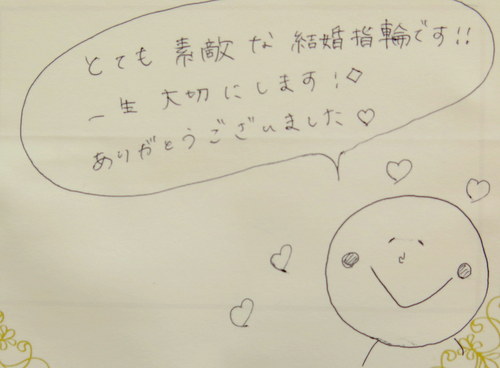 とても 素敵 な 結婚指輪です!!
一生 大切にします!◇
ありがとうございました♡